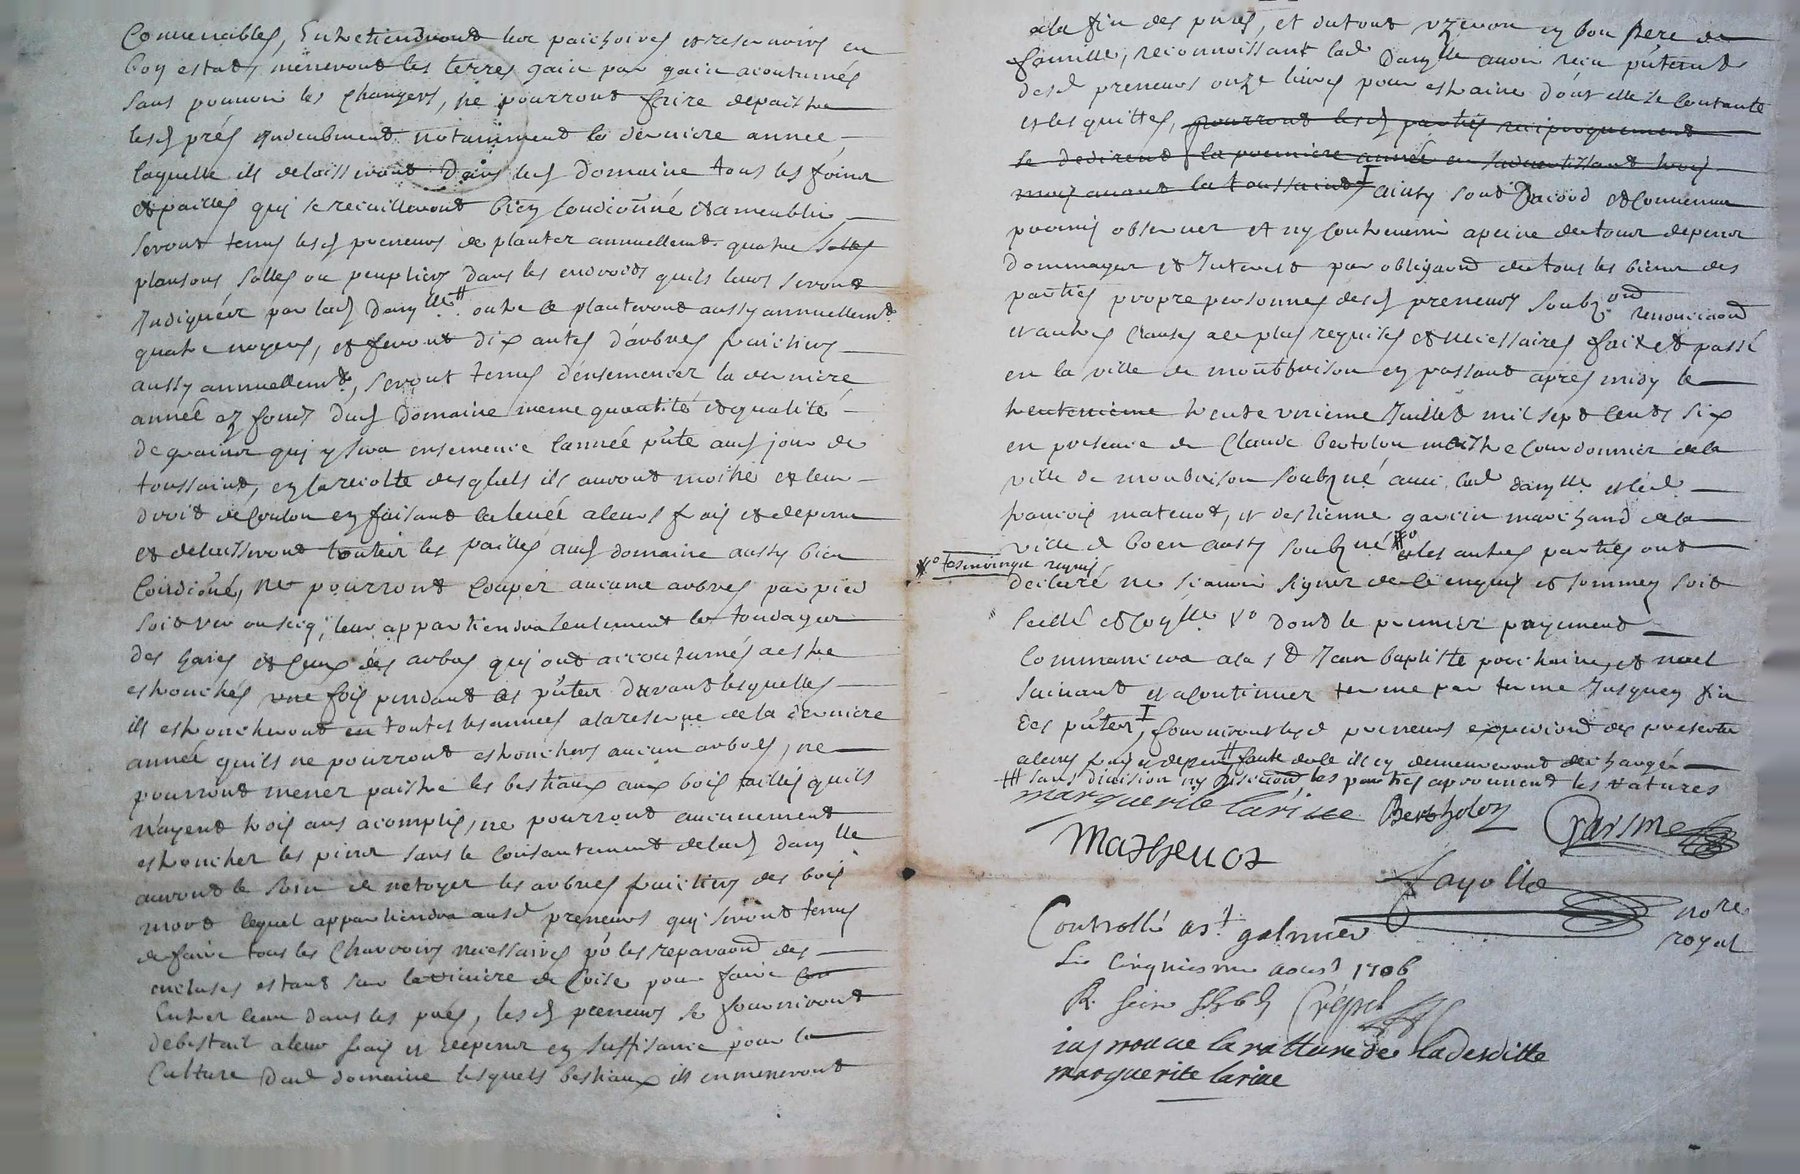 Convenables, Entretiendront les paichoires et reservoirs en
bon estat, meneront les terres gain par gain acoutumés
sans pouvoir les changers, ne pourront faire depaistre
lesd prés induëment notamment la derniere année,
laquelle ils delaisseront dans led domaine tous les foins
et pailles quj se recuilleront bien condionné et ameublir
seront tenus lesd preneurs de planter annuellemt quatre
plansons salles ou peupliers dans les endroits quils leurs seront
Indiquéir par lad damlle # outre ce planteront aussy annuellemt
quatre noyers, et feront dix antes d'arbres fruictiers
aussy annuellemt, seront tenus densemencer la derniere
année ez fonds dud domaine meme quantité et qualité
de grains quj y sera ensemencé l'année pnte aud jour de
toussaint, en la recolte desquels ils auront moitié et leur
droit de coulon en faisant la levée a leurs frais et depens
et delaisseront toutes les pailles aud domaine aussy bien
Condioné, ne pourront couper aucuns arbres par pied
soit ver ou secq, leur appartiendra seulement les tondages
des hayes et ceux des arbres quj ont accoutumés destre
estronchés une fois pendant les pntes durant lesquelles
ils estroncheront en toutes les années a la reserve de la derniere
année quils ne pourront estronchers aucun arbres, ne
pourront mener paistre les bestiaux aux bois taillis quils
n'ayent trois ans acomplis, ne pourront aucunement
estroncher les pins sans le consantement de lad damlle
auront le soin de netoyer les arbres fruictiers des bois
mort lequel appartiendra ausd preneurs quj seront tenus
de faire tous les charrois necessaires pr les reparaons des
encluses estant sur la riviere de Coise pour faire
Entrer leau dans les prés, lesd preneurs se fourniront
de bestail a leur frais et depens en suffisance pour la
Culture dud domaine lesquels bestiaux ils enmeneront
a la fin des pntes, et du tout uzeront en bon Pere de
famille, reconnoissant lad damlle avoir receu pntemt
desd preneurs onze livres pour estraine dont elle se contante
et les quittes, pourront lesd parties reciproquement
se dedirent la premiere année en s'advertissant trois
mois avant la toussaint I ainsy sont d'acord et convenu
promis observer et ny contrevenir a peine de tous depens
dommages et Interest par obligaons de tous les biens des
parties propre personnes desd preneurs soubzons renonciaons
et autres clauses a ce plus requises et necessaires fait et passé
en la ville de montbrison en passant aprés midy le
trentenieme trente unieme Juillet mil sept cents six
en presence de Claude bertolon maistre courdonnier de la
ville de monbrison soubzné avec lad damlle et led
francois matenot, et destienne garcin marchand de la
ville de boen aussy soubzné et les autres parties ont
declaré ne scavoir signer de ce enquis et sommez soit
scellé et coqlle Vo dont le premier payement
Commancera a la st Jean baptiste prochaine, et noel
suivant et a continuer terme par terme Jusques fin
des pntes, I fourniront lesd preneurs expediond des presente
a leurs frais et depens # faute de ce ils en demeureront dechargés
### sans division ny discuond les parties aprouvent les ratures
marguerite larive Bertholon Garsme
Mathenot
Fayolle
nore
royal
Controllé a st galmier
Le Cinquiesme aoust 1706
R. Seize s
Crépet
iaprouve la ratture de Ladesditte
marguerite larive